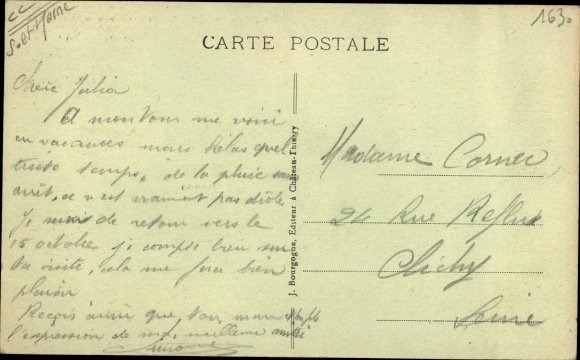 CC
S. et Marne
1630
CARTE POSTALE
Chère Julia
A mon tour me voici
en vacances mais hélas quel
triste temps, de la pluie sans
arrêt, ce n'est vraiment pas drôle
Je serai de retour vers le
15 octobre je compte bien sur
ta visite, cela me fera bien
plaisir
Reçois ainsi que ton mari
l'expression de ma meilleure amitié
Madame Cornec
24 Rue
Clichy
Seine
J. Bourgogne, Editeur à Château-Thierry